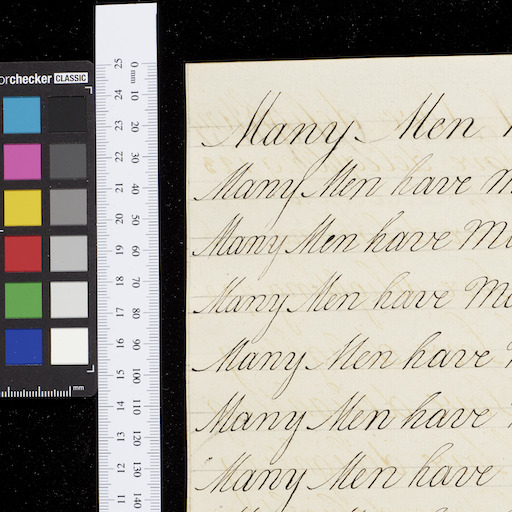 orchecker CLASSIC
mm
25 24 23 22 21 20 19 18 17 16 15 14 13 12 11
0 mm 10 20 30 40 50 60 70 80 90 100 110 120 130 140
Many Men
Many Men have M
Many Men have M
Many Men have M
Many Men have
Many Men have
Many Men have